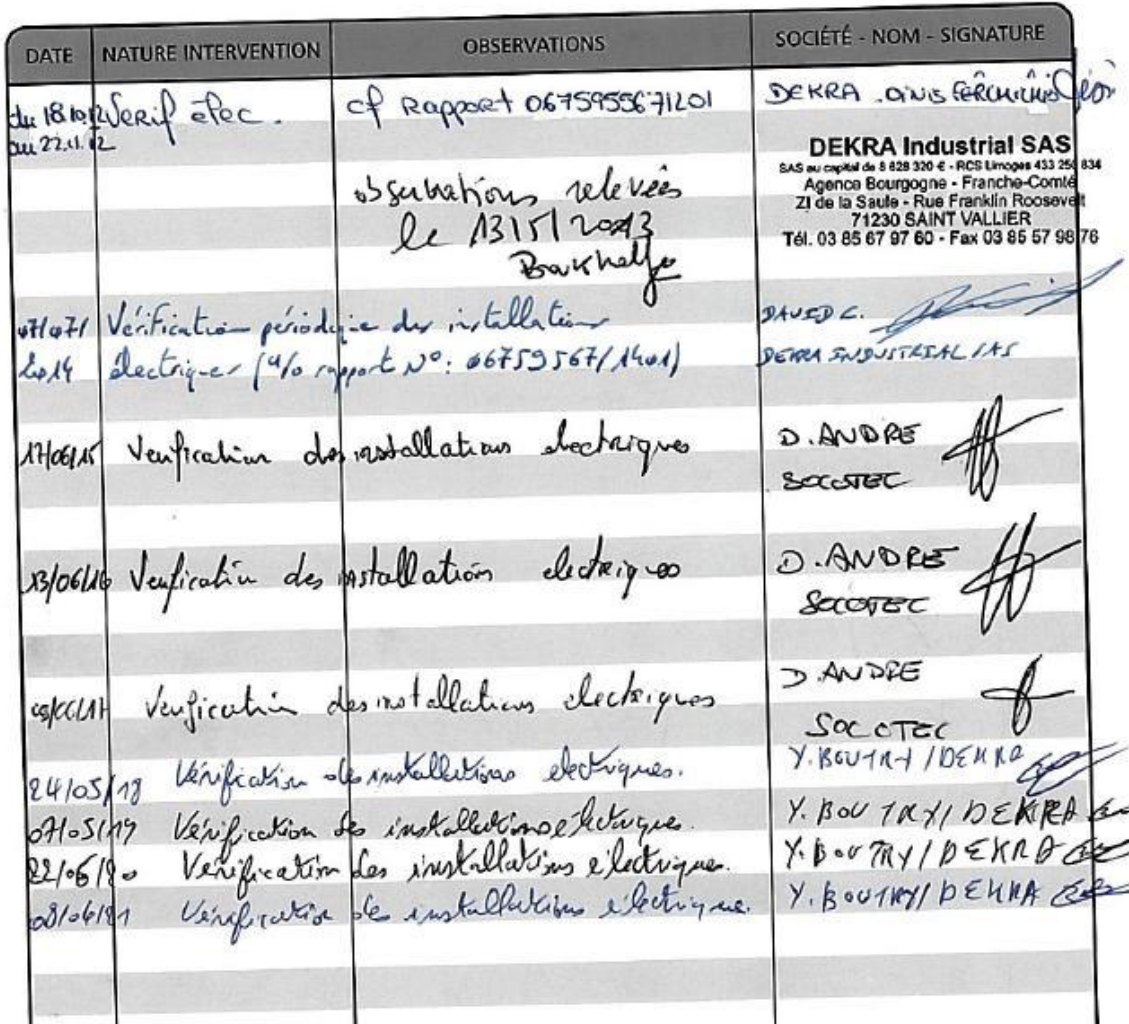 DATE NATURE INTERVENTION OBSERVATIONS SOCIÉTÉ - NOM - SIGNATURE
du 18.10.12 Verif élec. cf Rapport 0675955671201 DEKRA
au 22.11.12
DEKRA Industrial SAS
SAS au capital de 8 628 320 € - RCS Limoges 433 250 834
Agence Bourgogne - Franche-Comté
ZI de la Saule - Rue Franklin Roosevelt
71230 SAINT VALLIER
Tél. 03 85 67 97 60 - Fax 03 85 57 98 76
observations relevées
le 13/5/2013
07/07/ Vérification périodique des installations DAVID C.
2014 électriques (rapport N°: 06759567/1401) DEKRA INDUSTRIAL SAS
17/06/15 Verification des installations electriques D. ANDRE
SOCOTEC
13/06/16 Verification des installations electriques D. ANDRE
SOCOTEC
Verification des installations electriques D. ANDRE
SOCOTEC
24/05/18 Vérification des installations electriques. Y. BOUTRY / DEKRA
07/05/19 Vérification des installations electriques. Y. BOUTRY / DEKRA
22/06/20 Vérification des installations électriques. Y. BOUTRY / DEKRA
08/06/21 Vérification des installations électrique. Y. BOUTRY / DEKRA